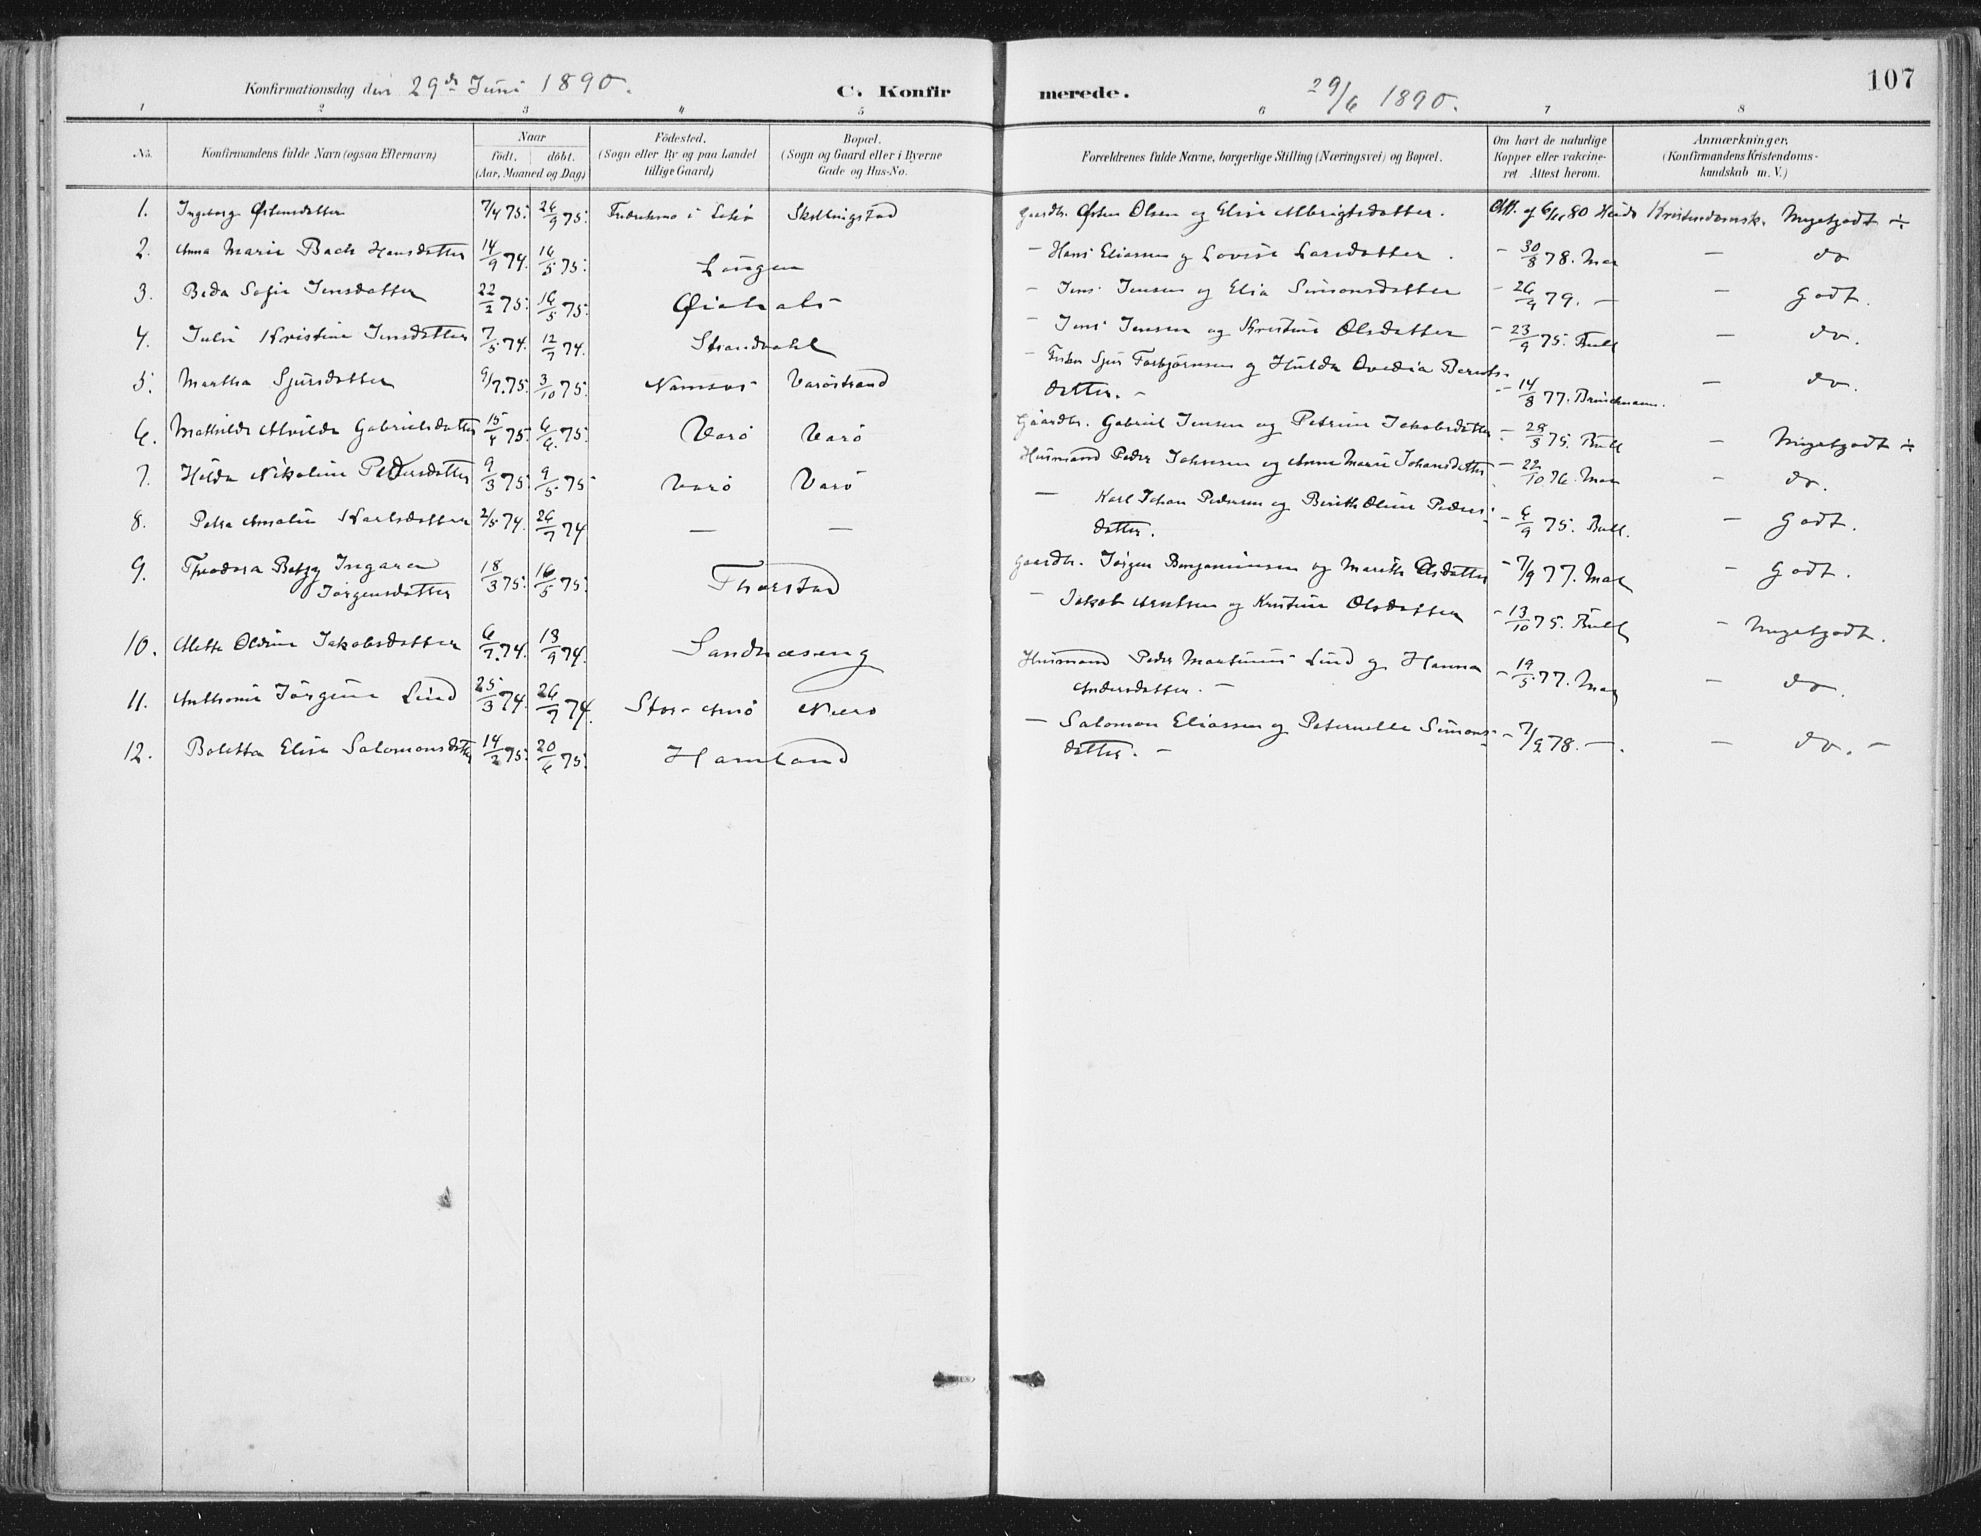 Konfirmationsdag den 29de Juni 1890.
C. Konfir
merede.
29/6 1890.
107
1 2 3 4 5 6 7 8
No. Konfirmandens fulde Navn (ogsaa Efternavn) Naar født. døbt. (Aar, Maaned og Dag) Fødested. (Sogn eller By og paa Landet tillige Gaard) Bopæl. (Sogn og Gaard eller i Byerne Gade og Hus-No. Forældrenes fulde Navne, borgerlige Stilling (Næringsvei) og Bopæl. Om havt de naturlige Kopper eller vakcineret Attest herom. Anmærkninger. (Konfirmandens Kristendomskundskab m. V.)
1. Ingeborg Østensdatter 7/4 75. 26/9 75. Gaardbr. Østen Olsen og Elise Albrigtsdatter. Att. af 6/11 80 Kristendomsk. Megetgodt ÷
2. Anna Marie Bach Hansdatter 14/9 74. 16/5 75. Lougen — Hans Eliassen og Lovise Larsdatter. - 30/8 78. — do
3. Beda Sofie Jensdatter 22/2 75. 16/5 75. — Jens Jensen og Elia Simonsdatter - 26/9 79. — — Godt.
4. Julie Kristine Jensdatter 7/5 74. 12/7 74. Strandvahl — Jens Jensen og Kristine Olsdatter - 23/9 75. Bull — do.
5. Martha Sjursdatter 9/7 75. 3/10 75. Namsos Varöstrand — Fisker Sjur Torbjørnsen og Hulda Ovedia Berntsdatter. - - 14/8 77. Brinchmann. — do.
6. Mathilde Alvilde Gabrielsdatter 15/4 75. 6/6 75. Varö Varö Gaardbr. Gabriel Jensen og Petrine Jakobsdatter - 28/8 75. Bull — Megetgodt ÷
7. Hilda Nikoline Pedersdatter 9/3 75. 9/5 75 Varö Varö Husmand Peder Johnsen og Anne Marie Johansdatter - 22/10 76. — do.
8. Petra Amalie Karlsdatter 2/5 74. 26/7 74 — — — Karl Johan Pedersen og Berith Oline Pedersdatter. - 6/9 75. Bull. — Godt.
9. Theodora Betzy Ingara Jörgensdatter 18/3 75. 16/5 75. Thorstad Gaardbr. Jörgen Benjaminsen og Marith Olsdatter - 7/9 77. — Godt.
10. Mette Oldine Jakobsdatter 6/7 74. 13/9 74. Sandnæseng — Jakob Arntsen og Kristine Olsdatter - 13/10 75. Bull — Megetgodt.
11. Anthonie Jörgine Lind 25/3 74. 26/7 74. Husmand Peder Martinus Lind og Hanna Andersdatter. — - 19/5 77. — do.
12. Boletta Elise Salomonsdatter 14/2 75. 20/6 75. Hamland — Salomon Eliassen og Peternelle Simonsdatter. — - 7/9 78. —. — do. —